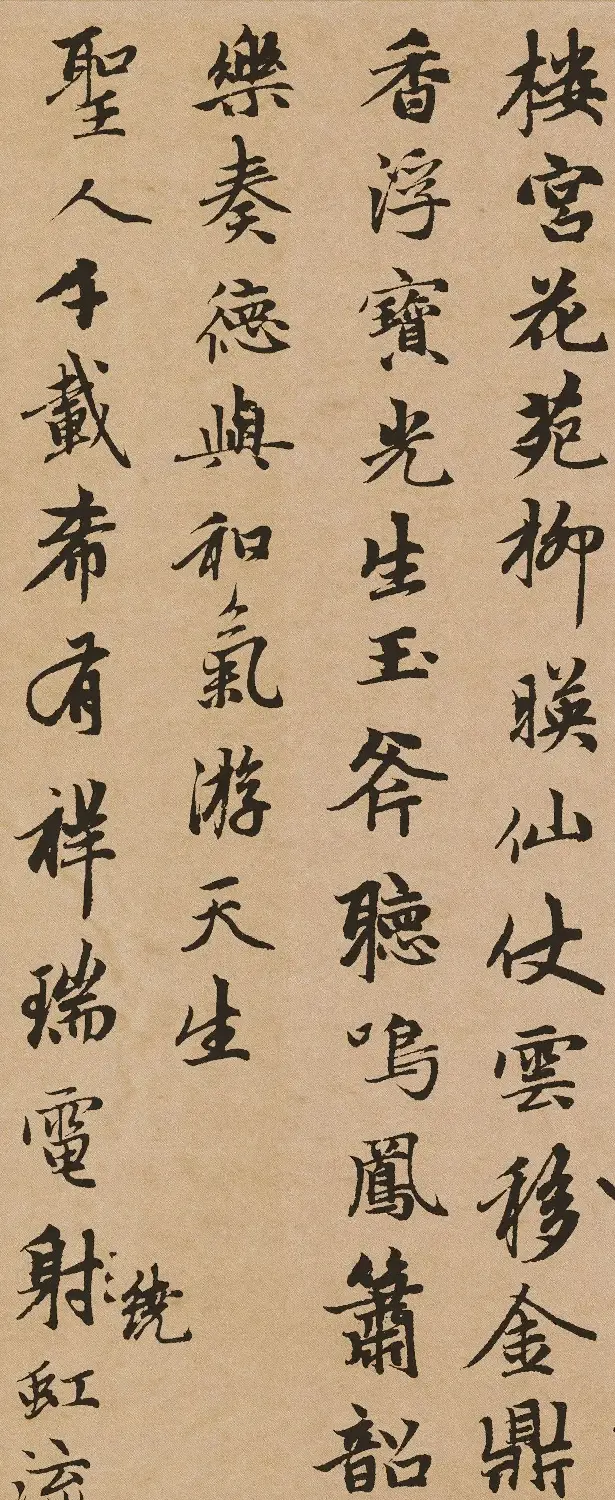 楼宮花苑柳暎仙仗雲移金鼎
香浮寶光生玉斧聽鳴鳳簫韶
樂奏德與和氣游天生
聖人千載希有祥瑞電繞射虹流